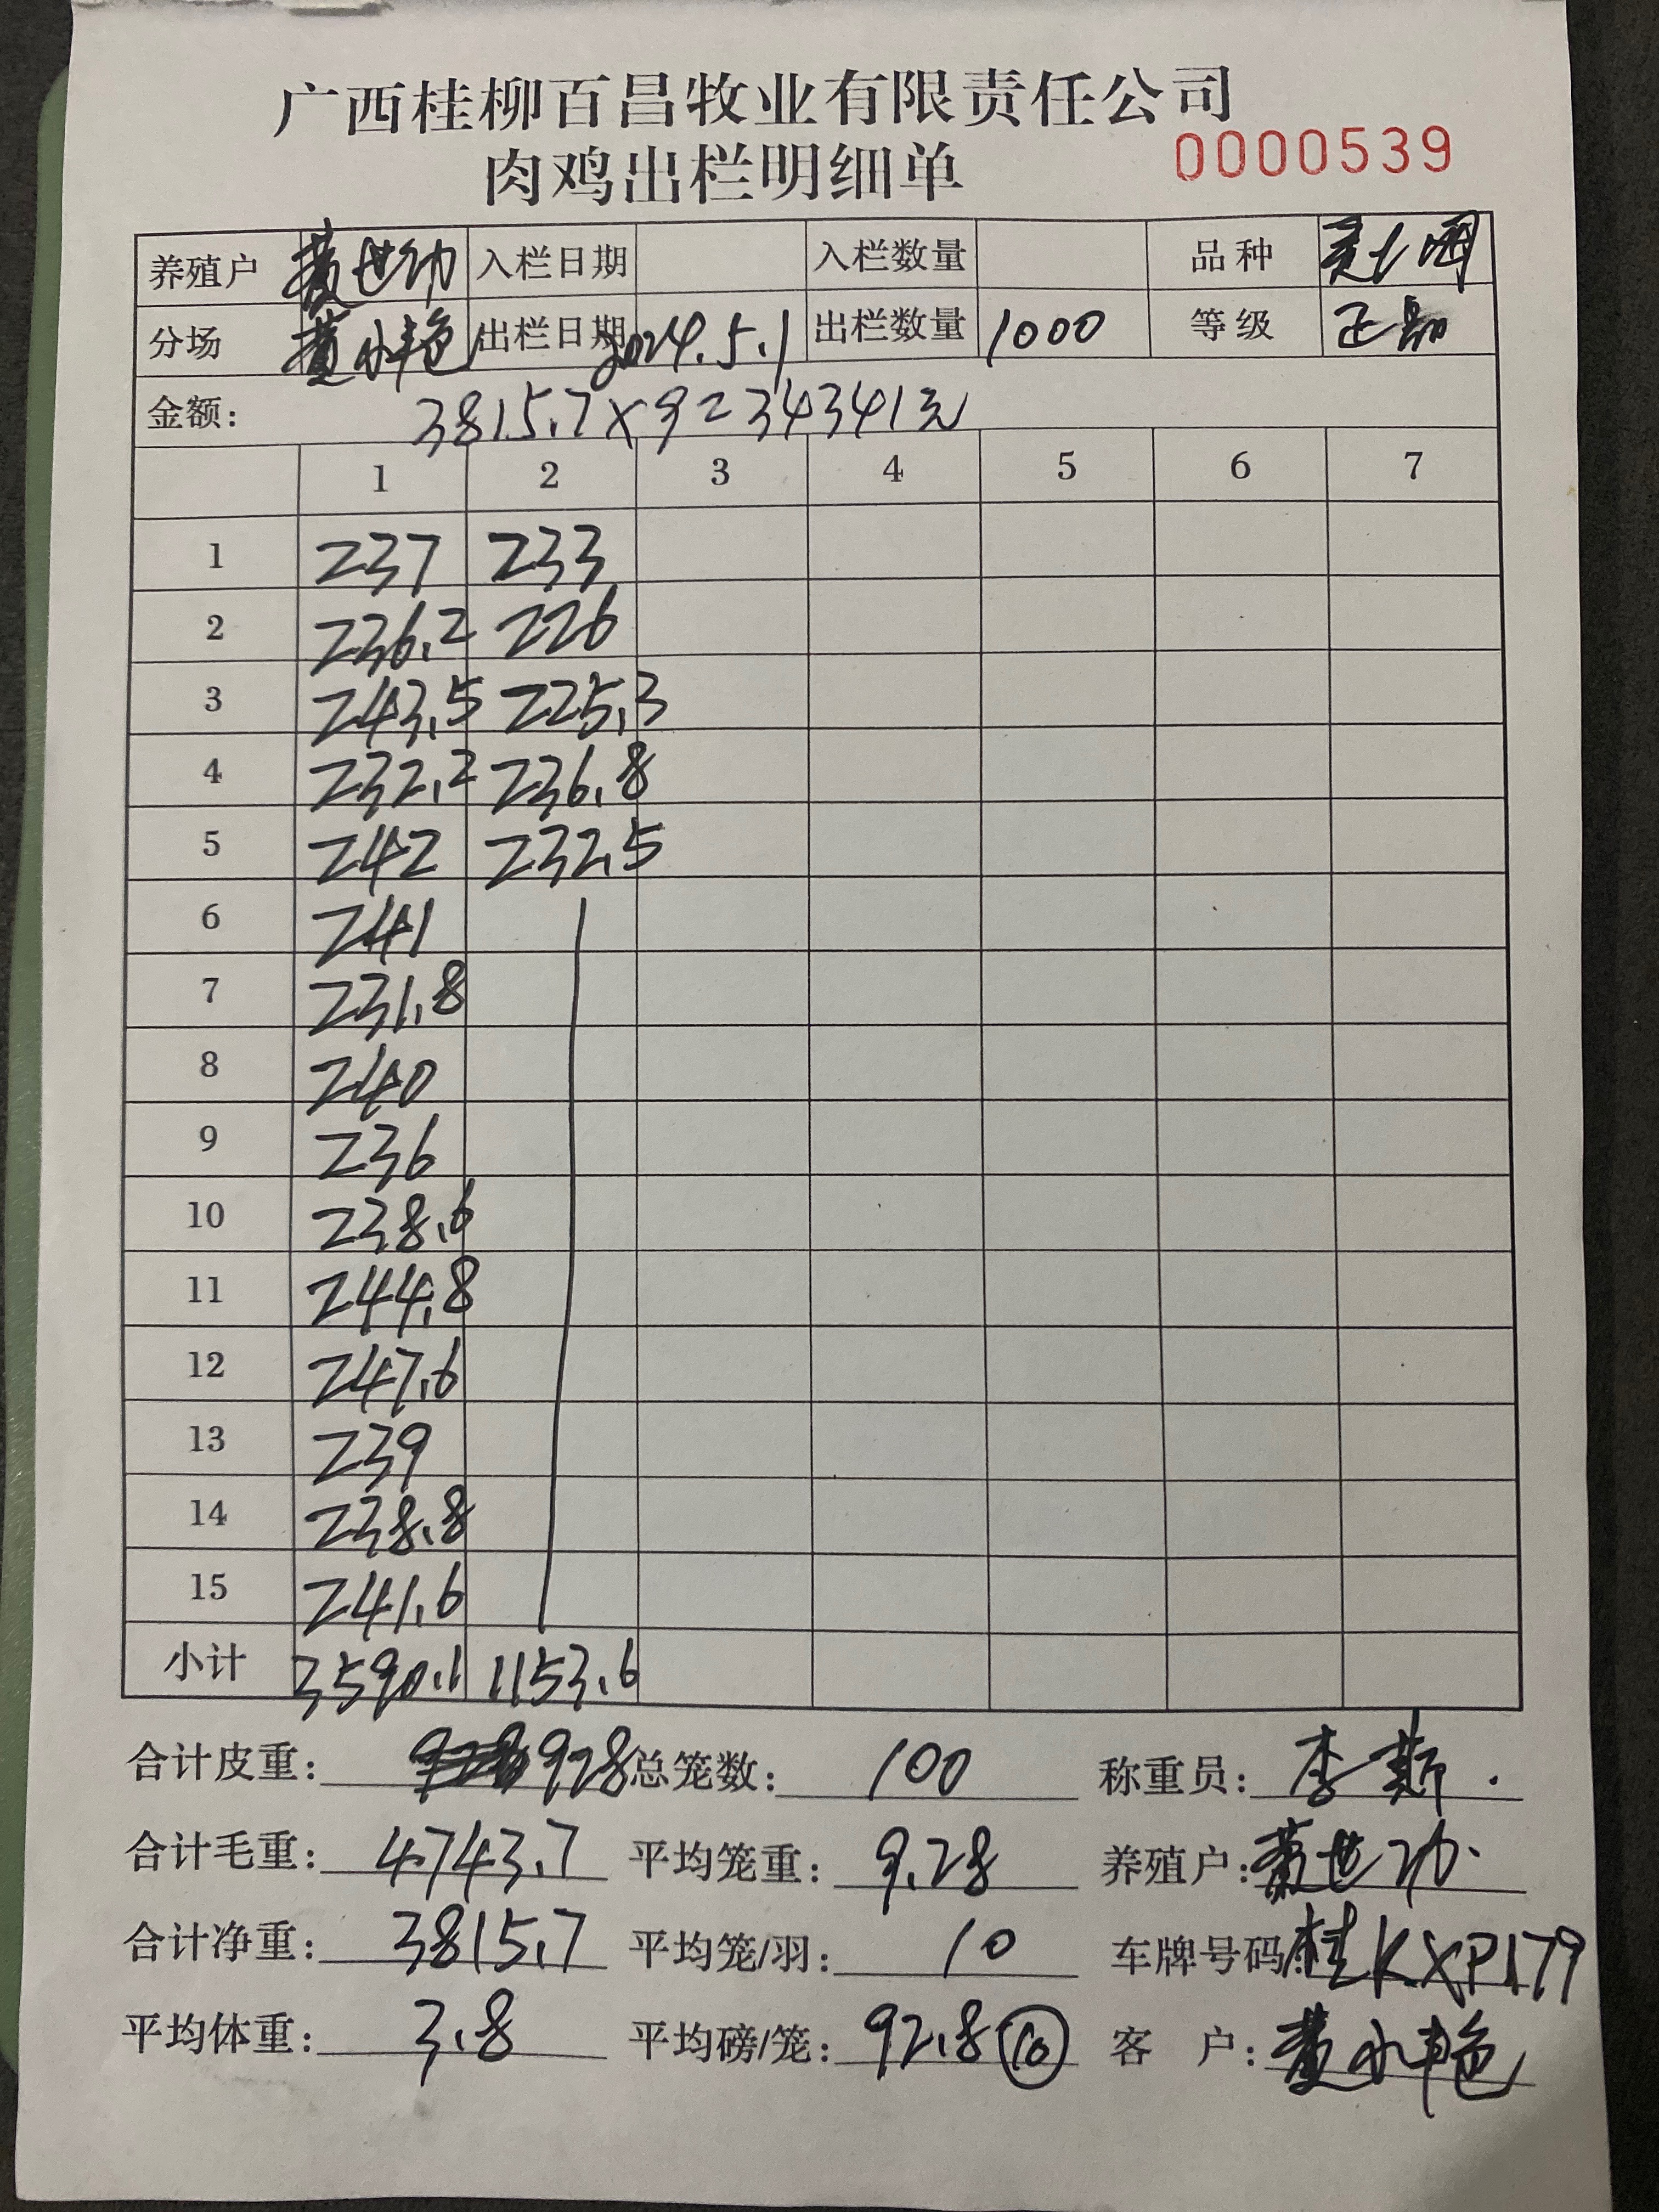 广西桂柳百昌牧业有限责任公司
肉鸡出栏明细单 0000539
养殖户 入栏日期 入栏数量 品种
分场 黄小艳 出栏日期 2024.5.1 出栏数量 1000 等级 正品
金额: 3815.7×9=34341元
1 2 3 4 5 6 7
1 237 233
2 236.2 226
3 243.5 225.3
4 232.2 236.8
5 242 232.5
6 241
7 231.8
8 240
9 236
10 238.6
11 244.8
12 247.6
13 239
14 238.8
15 241.6
小计 3590.1 1153.6
合计皮重: 928 总笼数: 100 称重员: 李
合计毛重: 4743.7 平均笼重: 9.28 养殖户:
合计净重: 3815.7 平均笼/羽: 10 车牌号码: 桂KXP179
平均体重: 3.8 平均磅/笼: 92.8 10 客户: 黄小艳